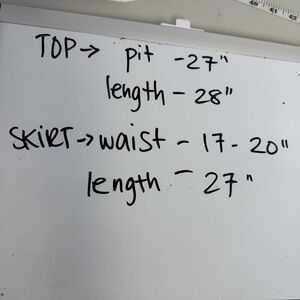 TOP → pit - 27"
length - 28"
SKIRT → waist - 17 - 20"
length - 27"